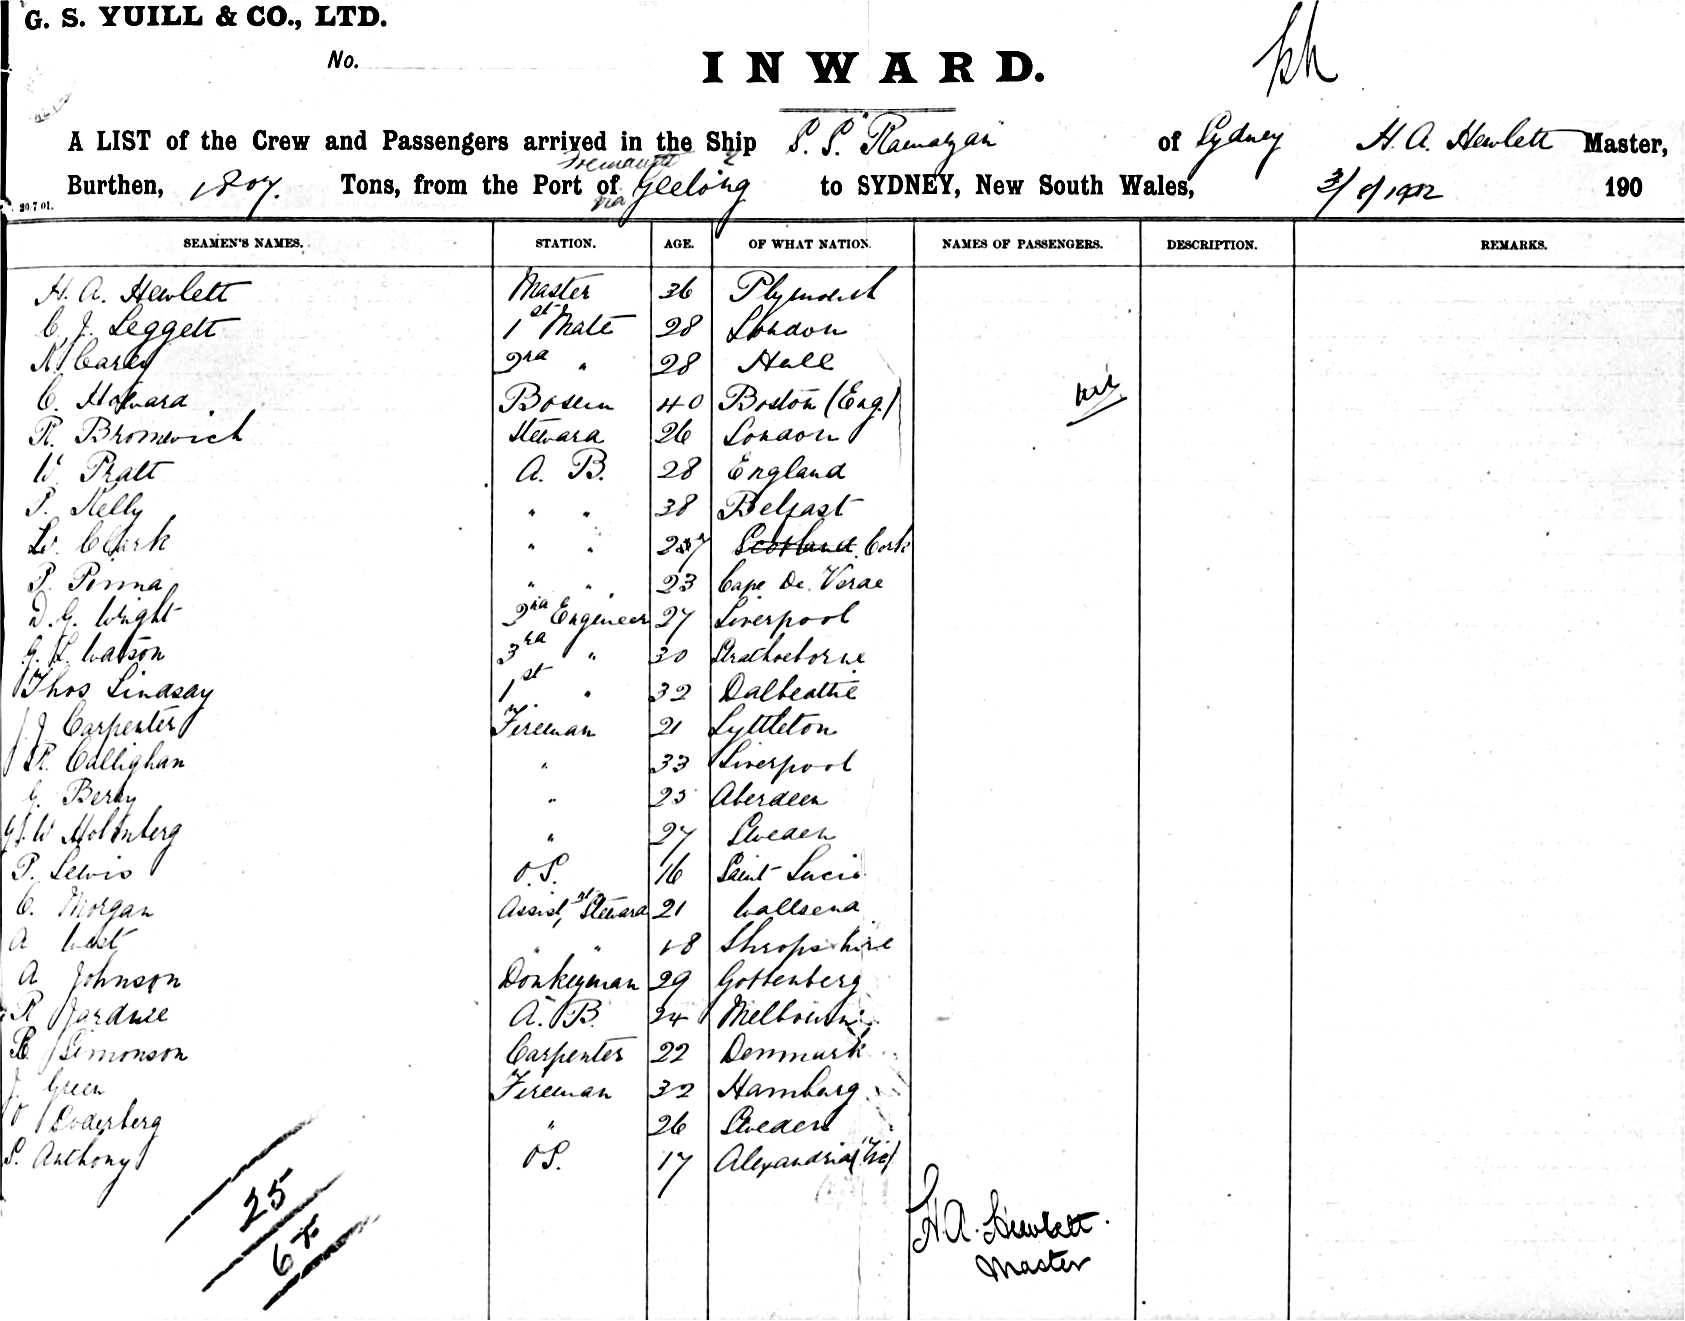 G. S. YUILL & CO., LTD.
No.
INWARD.
A LIST of the Crew and Passengers arrived in the Ship S. S. "Ramazan of Sydney H. A. Hewlett Master,
Fremantle &
Burthen, 1807. Tons, from the Port of via Geelong to SYDNEY, New South Wales, 3/8/1902 190
20.7.01.
SEAMEN'S NAMES. STATION. AGE. OF WHAT NATION. NAMES OF PASSENGERS. DESCRIPTION. REMARKS.
H. A. Hewlett Master 36 Plymouth
C. J. Leggett 1st Mate 28 London
Carey 2nd " 28 Hull
C. Howard Bosun 40 Boston (Eng.)
nil
R. Bromwich Steward 26 London
W. Pratt A. B. 28 England
P. Kelly " " 38 Belfast
W. Clark " " 27 Scotland Cork
P. Pinna " " 23 Cape De Verde
D. G. Wright 2nd Engineer 27 Liverpool
G. L. Watson 3rd " 30
Thos Lindsay 1st " 32 Dalbeattie
J. J. Carpenter Fireman 21 Lyttleton
R. Callighan " 33 Liverpool
G. Berry " 25 Aberdeen
W Holmberg " 27 Sweden
P. Lewis O.S. 16 Saint Lucia
C. Morgan Assist, Steward 21 Wallsend
A West " " 18 Shropshire
A Johnson Donkeyman 29 Gottenberg
R Jardine A. B. 24 Melbourne
Simonson Carpenter 22 Denmark
J. Green Fireman 32 Hamburg
O Soderberg " 26 Sweden
S. Anthony OS. 17 Alexandria (Vic)
25
H. A. Hewlett.
Master